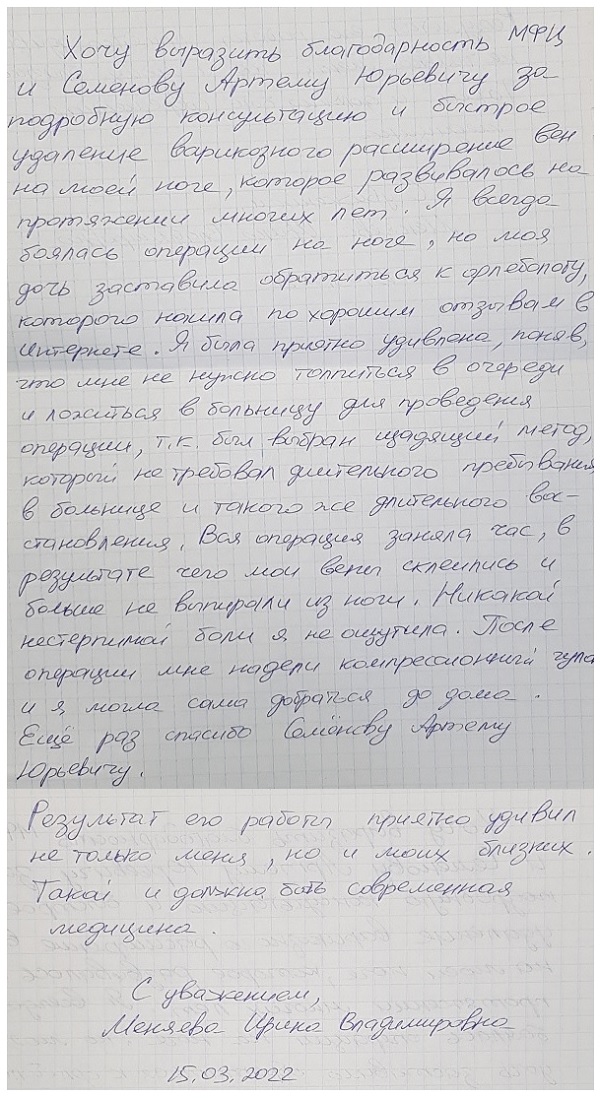 Хочу выразить благодарность МФЦ
и Семенову Артему Юрьевичу за
подробную консультацию и быстрое
удаление варикозного расширение вен
на моей ноге, которое развивалось на
протяжении многих лет. Я всегда
боялась операции на ноге, но моя
дочь заставила обратиться к флебологу,
которого нашла по хорошим отзывам в
интернете. Я была приятно удивлена, поняв,
что мне не нужно толпиться в очереди
и ложиться в больницу для проведения
операции, т.к. был выбран щадящий метод,
который не требовал длительного пребывания
в больнице и такого же длительного вос-
становления. Вся операция заняла час, в
результате чего мои вены склеились и
больше не выпирали из ноги. Никакой
нестерпимой боли я не ощутила. После
операции мне надели компрессионный чулок
и я могла сама добраться до дома.
Ещё раз спасибо Семёнову Артему
Юрьевичу.
Результат его работы приятно удивил
не только меня, но и моих близких.
Такой и должна быть современная
медицина.
С уважением,
Меняева Ирина Владимировна
15.03.2022